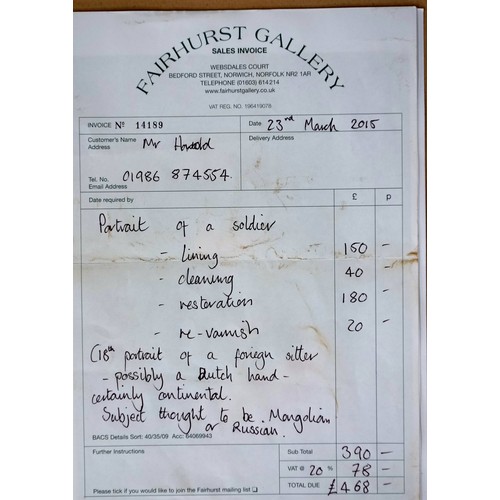 FAIRHURST GALLERY
SALES INVOICE
WEBSDALES COURT
BEDFORD STREET, NORWICH, NORFOLK NR2 1AR
TELEPHONE (01603) 614214
www.fairhurstgallery.co.uk
VAT REG. NO. 196419078
INVOICE Nº 14189
Date 23rd March 2015
Customer's Name Mr
Address
Delivery Address
Tel. No. 01986 874554.
Email Address
Date required by £ p
Portrait of a soldier
- lining 150 -
- cleaning 40 -
- restoration 180 -
- re-varnish 20 -
(18th portrait of a foriegn sitter
- possibly a Dutch hand -
certainly continental.
Subject thought to be Mongolian
or Russian.
BACS Details Sort: 40/35/09 Acc: 64069943
Further Instructions
Sub Total 390 -
VAT @ 20 % 78 -
TOTAL DUE £468 -
Please tick if you would like to join the Fairhurst mailing list